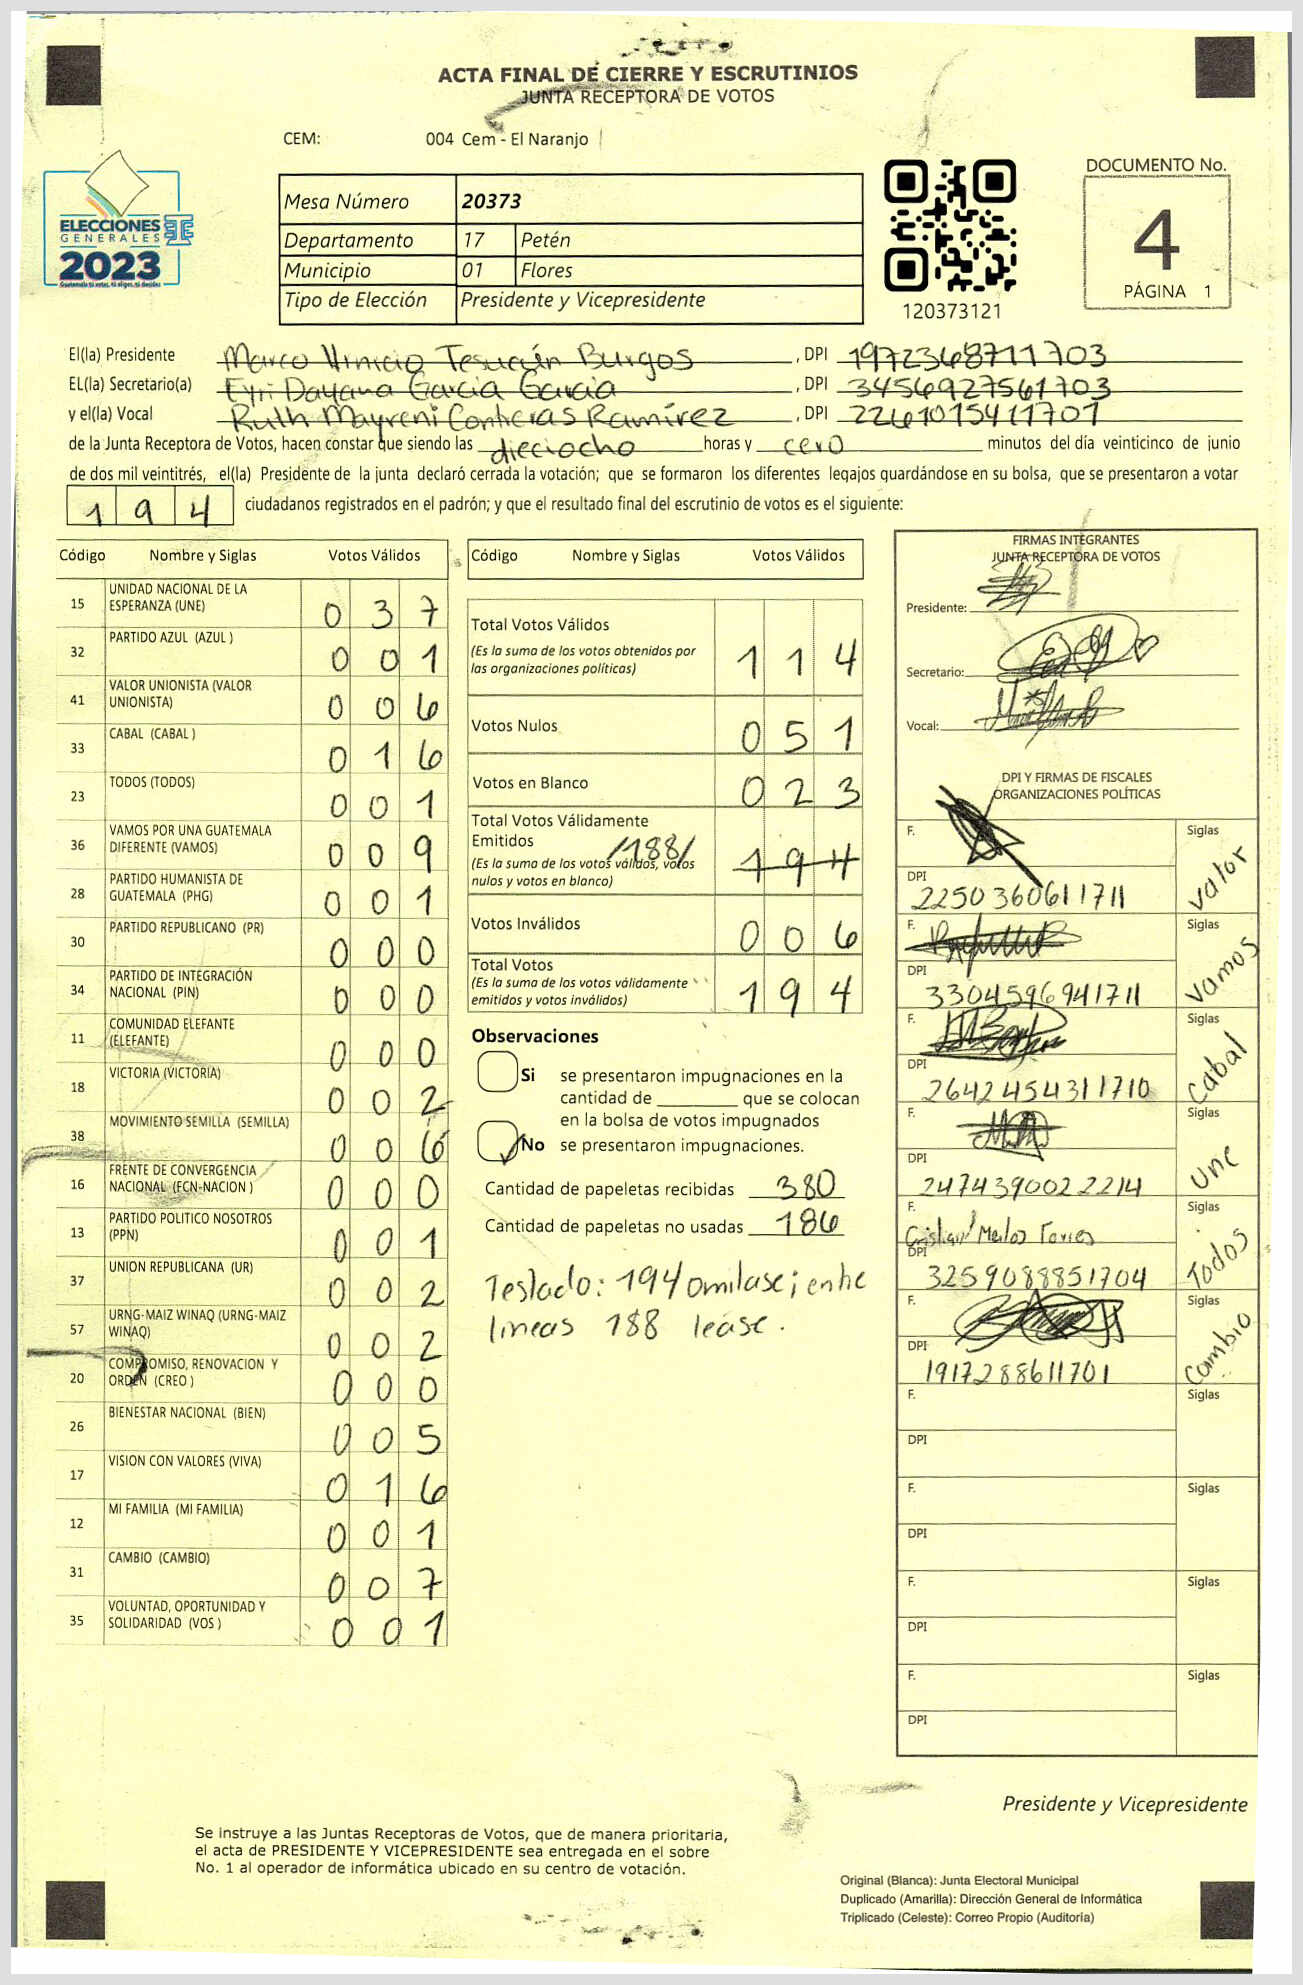 ACTA FINAL DE CIERRE Y ESCRUTINIOS
JUNTA RECEPTORA DE VOTOS
CEM: 004 Cem - El Naranjo
ELECCIONES
GENERALES
2023
Guatemala tú votas, tú eliges, tú decides
Mesa Número 20373
Departamento 17 Petén
Municipio 01 Flores
Tipo de Elección Presidente y Vicepresidente
120373121
DOCUMENTO No.
4
PÁGINA 1
El(la) Presidente Marco Vinicio Tesucún Burgos, DPI 1972368711703
EL(la) Secretario(a) Eyri Dayana García García, DPI 3456927561703
y el(la) Vocal Ruth Mayreni Contreras Ramírez, DPI 2261015411701
de la Junta Receptora de Votos, hacen constar que siendo las dieciocho horas y cero minutos del día veinticinco de junio
de dos mil veintitrés, el(la) Presidente de la junta declaró cerrada la votación; que se formaron los diferentes legajos guardándose en su bolsa, que se presentaron a votar
194 ciudadanos registrados en el padrón; y que el resultado final del escrutinio de votos es el siguiente:
Código Nombre y Siglas Votos Válidos
15 UNIDAD NACIONAL DE LA
ESPERANZA (UNE) 037
32 PARTIDO AZUL (AZUL ) 001
41 VALOR UNIONISTA (VALOR
UNIONISTA) 006
33 CABAL (CABAL ) 016
23 TODOS (TODOS) 001
36 VAMOS POR UNA GUATEMALA
DIFERENTE (VAMOS) 009
28 PARTIDO HUMANISTA DE
GUATEMALA (PHG) 001
30 PARTIDO REPUBLICANO (PR) 000
34 PARTIDO DE INTEGRACIÓN
NACIONAL (PIN) 000
11 COMUNIDAD ELEFANTE
(ELEFANTE) 000
18 VICTORIA (VICTORIA) 002
38 MOVIMIENTO SEMILLA (SEMILLA) 006
16 FRENTE DE CONVERGENCIA
NACIONAL (FCN-NACION ) 000
13 PARTIDO POLITICO NOSOTROS
(PPN) 001
37 UNION REPUBLICANA (UR) 002
57 URNG-MAIZ WINAQ (URNG-MAIZ
WINAQ) 002
20 COMPROMISO, RENOVACION Y
ORDEN (CREO ) 000
26 BIENESTAR NACIONAL (BIEN) 005
17 VISION CON VALORES (VIVA) 016
12 MI FAMILIA (MI FAMILIA) 001
31 CAMBIO (CAMBIO) 007
35 VOLUNTAD, OPORTUNIDAD Y
SOLIDARIDAD (VOS ) 001
Código Nombre y Siglas Votos Válidos
Total Votos Válidos
(Es la suma de los votos obtenidos por
las organizaciones políticas) 114
Votos Nulos 051
Votos en Blanco 023
Total Votos Válidamente
Emitidos /188/ 194
(Es la suma de los votos válidos, votos
nulos y votos en blanco)
Votos Inválidos 006
Total Votos
(Es la suma de los votos válidamente
emitidos y votos inválidos) 194
Observaciones
Si se presentaron impugnaciones en la
cantidad de ________ que se colocan
en la bolsa de votos impugnados
No se presentaron impugnaciones.
Cantidad de papeletas recibidas 380
Cantidad de papeletas no usadas 186
Testado: 194 omitase; entre
lineas 188 léase.
FIRMAS INTEGRANTES
JUNTA RECEPTORA DE VOTOS
Presidente:
Secretario:
Vocal:
DPI Y FIRMAS DE FISCALES
ORGANIZACIONES POLÍTICAS
F. Siglas
DPI Valor
2250360611711
F. Siglas
DPI Vamos
3304596941711
F. Siglas
DPI Cabal
2642454311710
F. Siglas
DPI Une
2474390022214
F. Siglas
DPI Todos
3259088851704
F. Siglas
DPI Cambio
1917288611701
F. Siglas
DPI
F. Siglas
DPI
F. Siglas
DPI
F. Siglas
DPI
Presidente y Vicepresidente
Se instruye a las Juntas Receptoras de Votos, que de manera prioritaria,
el acta de PRESIDENTE Y VICEPRESIDENTE sea entregada en el sobre
No. 1 al operador de informática ubicado en su centro de votación.
Original (Blanca): Junta Electoral Municipal
Duplicado (Amarilla): Dirección General de Informática
Triplicado (Celeste): Correo Propio (Auditoría)